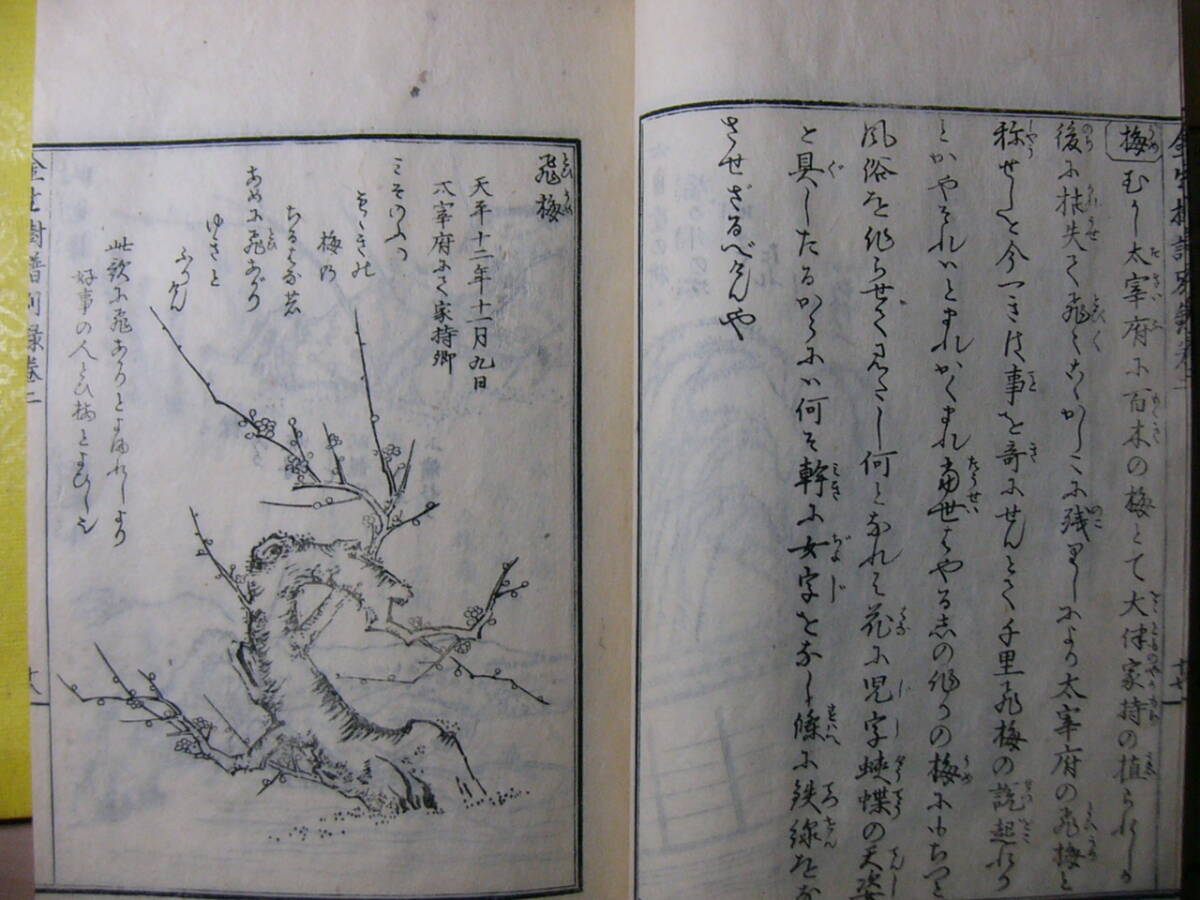 梅 むかし太宰府に百本の梅とて大伴家持の植られしか
後に枯失て飛々こゝかしこに残りしにより太宰府の飛梅と
称せしを今つき は事を奇にせんとて千里飛梅の説起れり
とかやそれはとまれかくまれ当世はやる 作りの梅に
風俗を作らせて見 し何となれは花に児字 蝶の天姿
と具したるからには何そ幹に女字をなし條に鉄線をな
させざるべけんや
金生樹譜別録卷二
十七
飛梅
天平十二年十一月九日
太宰府にて家持卿
みそのふの
もゝきの
梅の
ちるはなは
あめに飛あかり
ゆきと
ふりけん
此歌に飛あかりとよまれしより
好事の人とひ梅とよひし也
金生樹譜別録卷二
十八